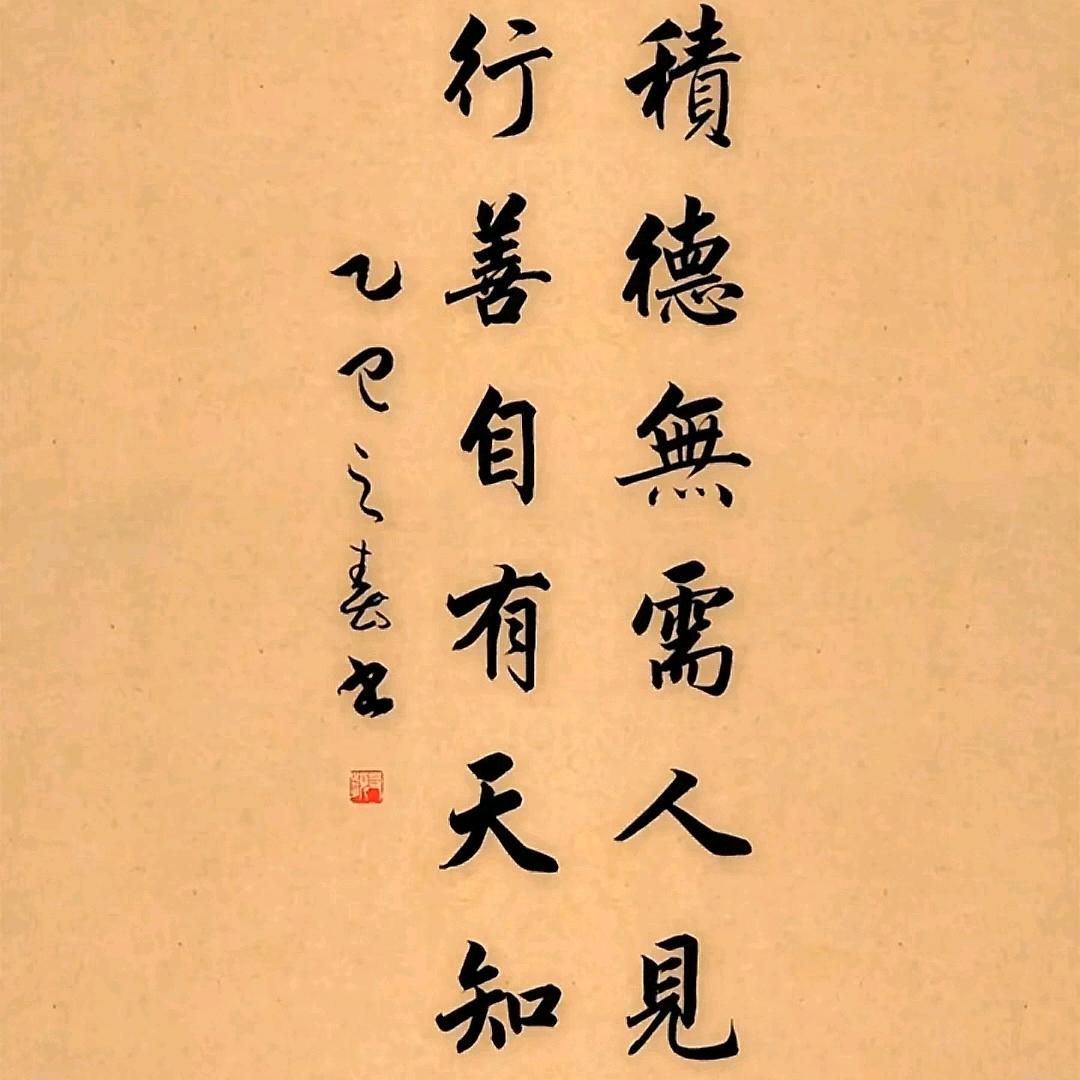 積德無需人見
行善自有天知
乙巳之春书